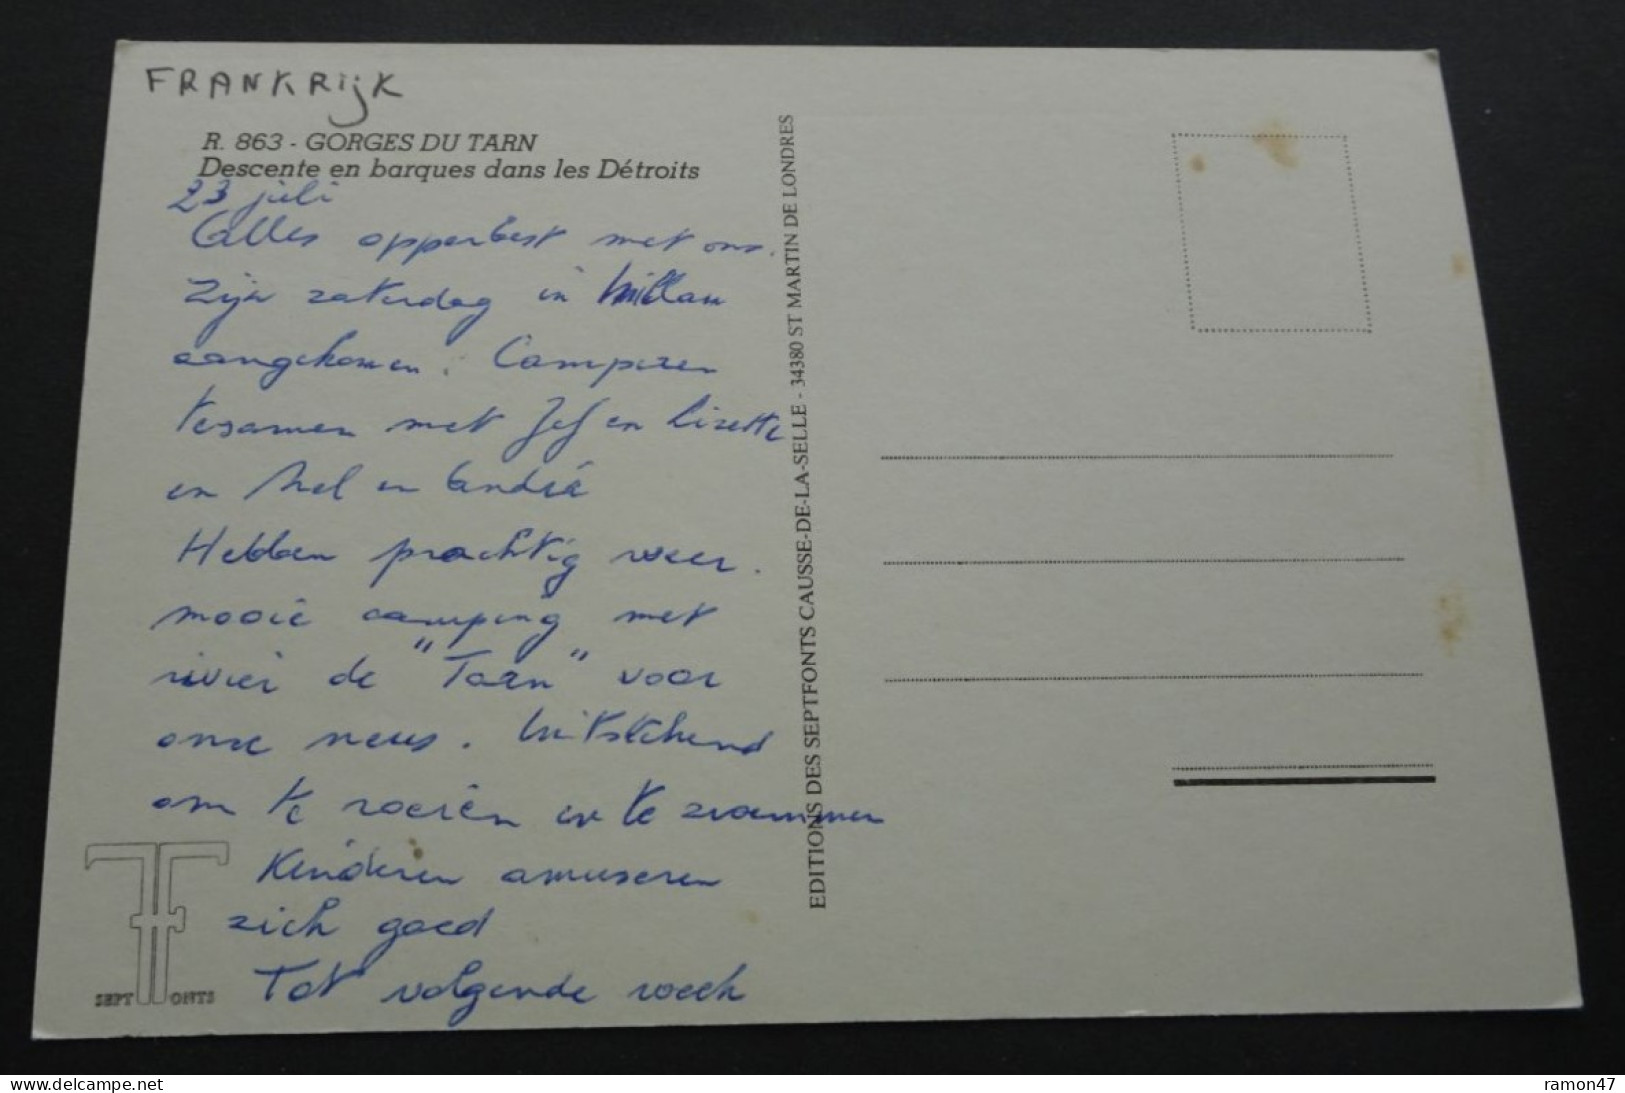 FRANKRijk
R. 863 - GORGES DU TARN
Descente en barques dans les Détroits
23 juli
Alles opperbest met ons.
Zijn zaterdag in Millau
aangekomen. Camperen
tesamen met Jef en Lizette
en Mel en André
Hebben prachtig weer.
mooie camping met
rivier de "Tarn" voor
onze neus. Uitstekend
om te roeien en te zwemmen
Kinderen amuseren
zich goed
Tot volgende week
SEPT FONTS
EDITIONS DES SEPTFONTS CAUSSE-DE-LA-SELLE - 34380 ST MARTIN DE LONDRES
www.delcampe.net
ramon47